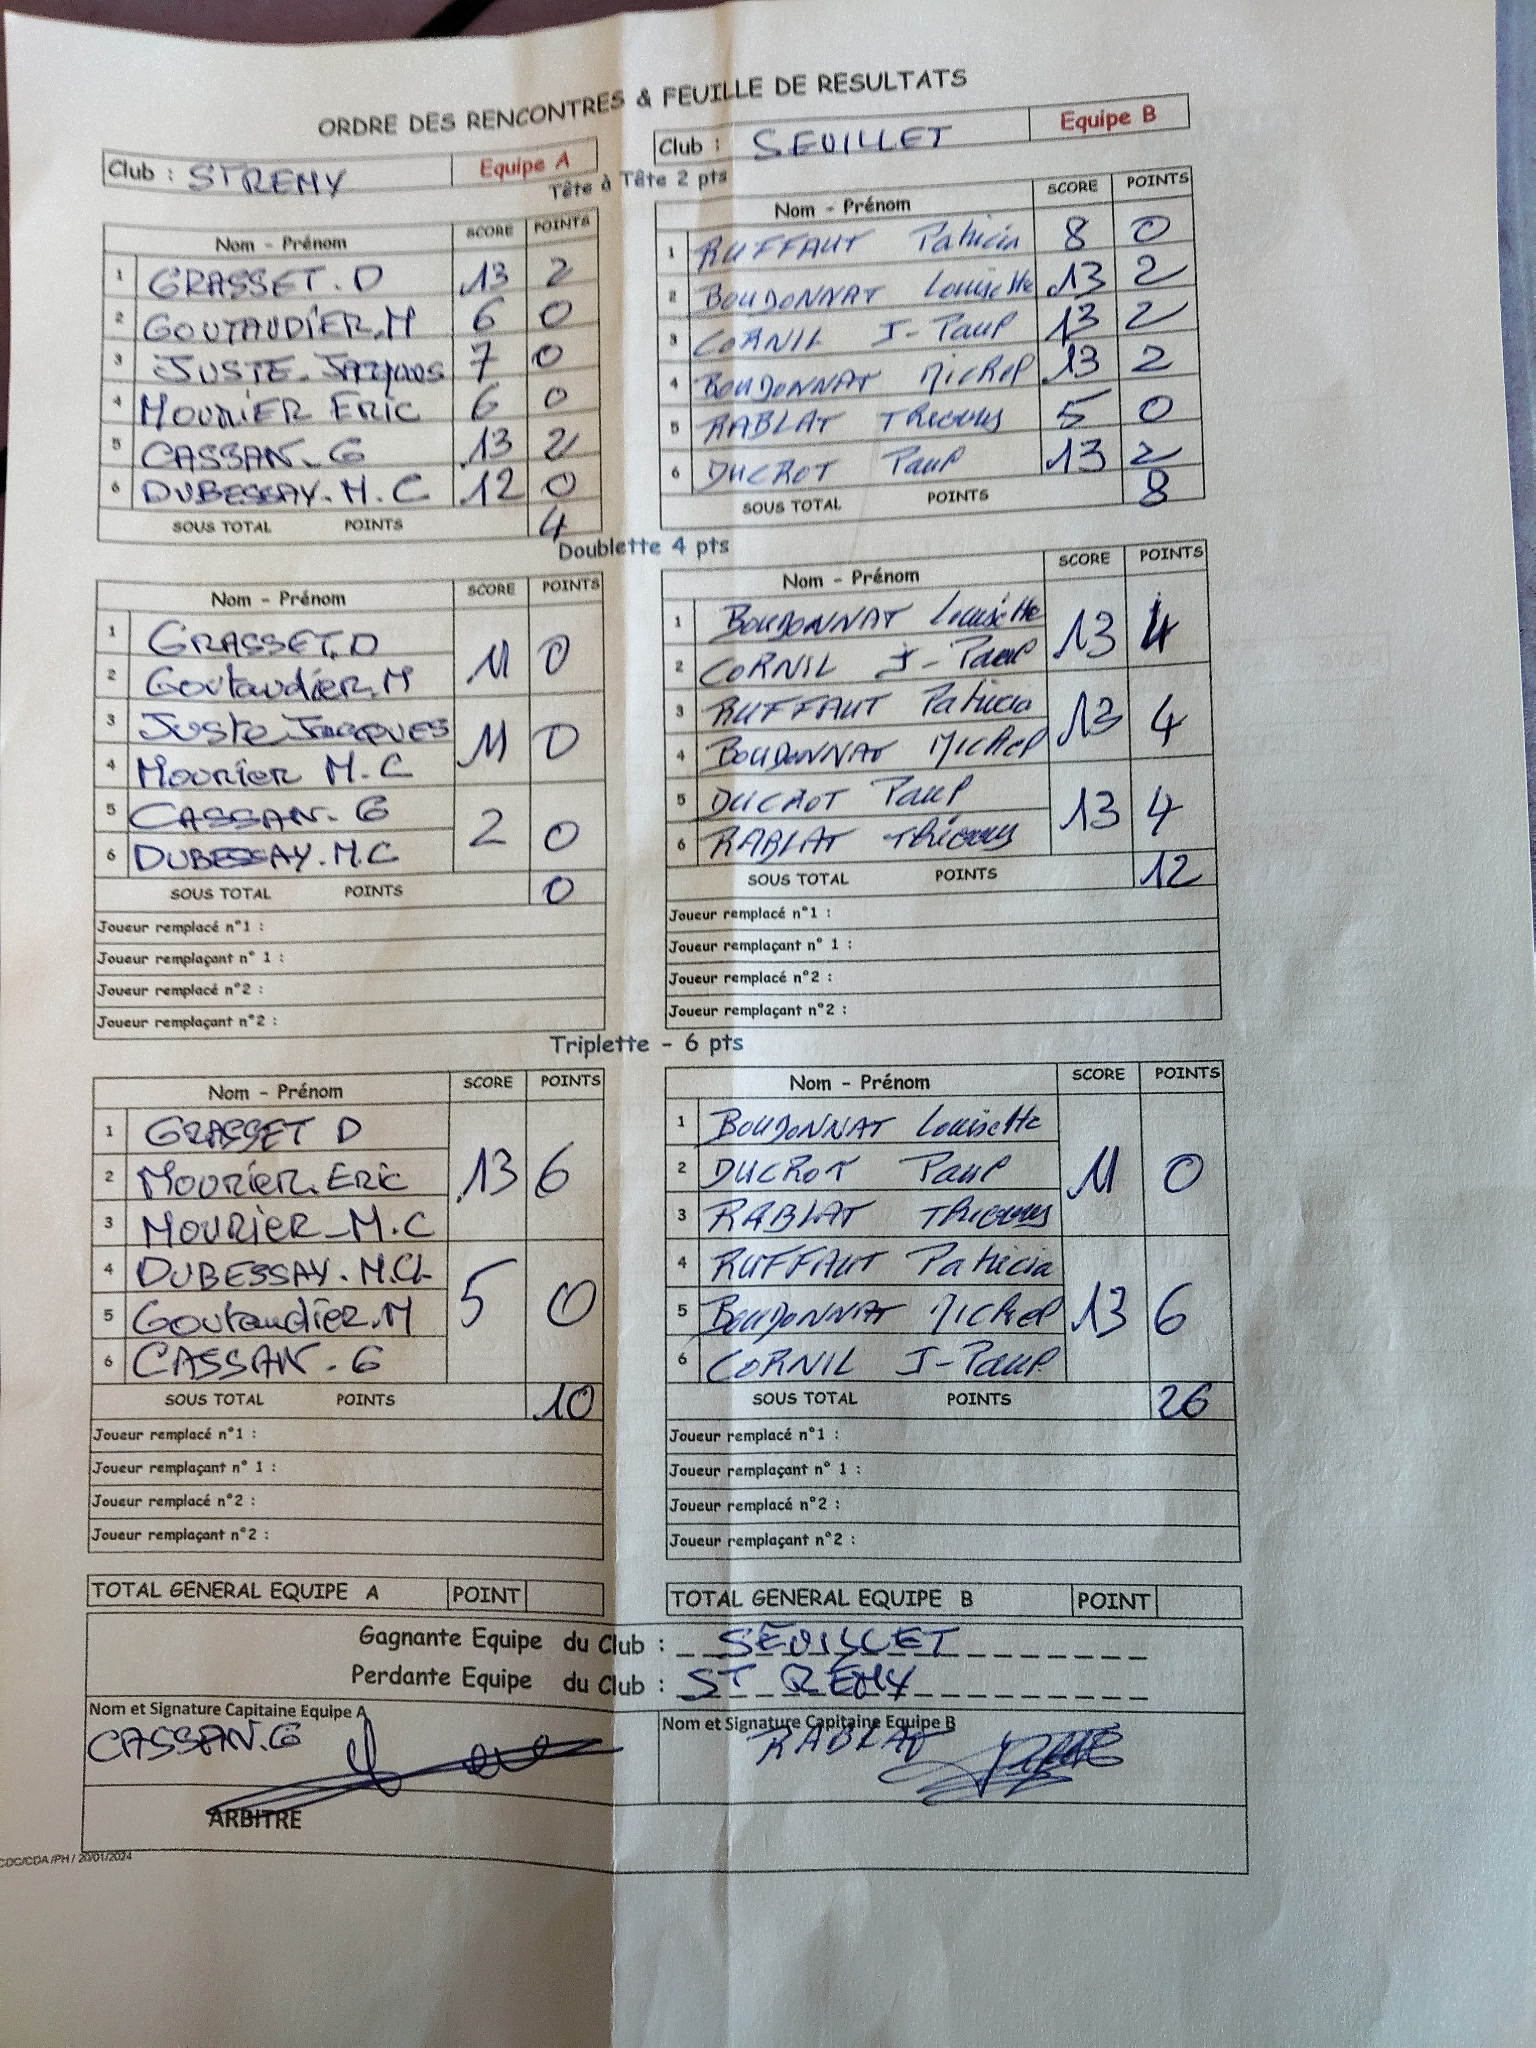 ORDRE DES RENCONTRES & FEUILLE DE RESULTATS
Club : ST REMY Equipe A
Club : SEUILLET Equipe B
Tête à Tête 2 pts
Nom - Prénom SCORE POINTS
1 GRASSET. D 13 2
2 GOUTAUDIER.M 6 0
3 JUSTE. Jacques 7 0
4 MOURIER ERIC 6 0
5 CASSAN. G 13 2
6 DUBESSAY. M. C 12 0
SOUS TOTAL POINTS 4
Nom - Prénom SCORE POINTS
1 RUFFAUT Patricia 8 0
2 BOUDONNAT Louisette 13 2
3 CORNIL J-Paul 13 2
4 BOUDONNAT Michel 13 2
5 RABLAT Thierry 5 0
6 DUCROT Paul 13 2
SOUS TOTAL POINTS 8
Doublette 4 pts
Nom - Prénom SCORE POINTS
1 GRASSET.D 11 0
2 Goutaudier.M
3 Juste Jacques 11 0
4 Mourier M.C
5 CASSAN. G 2 0
6 DUBESSAY. M.C
SOUS TOTAL POINTS 0
Joueur remplacé n°1 :
Joueur remplaçant n° 1 :
Joueur remplacé n°2 :
Joueur remplaçant n°2 :
Nom - Prénom SCORE POINTS
1 BOUDONNAT Louisette 13 4
2 CORNIL J-Paul
3 RUFFAUT Patricia 13 4
4 BOUDONNAT Michel
5 DUCROT Paul 13 4
6 RABLAT Thierry
SOUS TOTAL POINTS 12
Joueur remplacé n°1 :
Joueur remplaçant n° 1 :
Joueur remplacé n°2 :
Joueur remplaçant n°2 :
Triplette - 6 pts
Nom - Prénom SCORE POINTS
1 GRASSET D 13 6
2 Mourier. Eric
3 MOURIER_M.C
4 DUBESSAY. M.C 5 0
5 Goutaudier.M
6 CASSAN. G
SOUS TOTAL POINTS 10
Joueur remplacé n°1 :
Joueur remplaçant n° 1 :
Joueur remplacé n°2 :
Joueur remplaçant n°2 :
Nom - Prénom SCORE POINTS
1 BOUDONNAT Louisette 11 0
2 DUCROT Paul
3 RABLAT Thierry
4 RUFFAUT Patricia 13 6
5 BOUDONNAT Michel
6 CORNIL J-Paul
SOUS TOTAL POINTS 26
Joueur remplacé n°1 :
Joueur remplaçant n° 1 :
Joueur remplacé n°2 :
Joueur remplaçant n°2 :
TOTAL GENERAL EQUIPE A POINT
TOTAL GENERAL EQUIPE B POINT
Gagnante Equipe du Club : SEUILLET
Perdante Equipe du Club : ST RÉMY
Nom et Signature Capitaine Equipe A
CASSAN.G
Nom et Signature Capitaine Equipe B
RABLAT
ARBITRE
CDC/CDA /PH / 20/01/2024